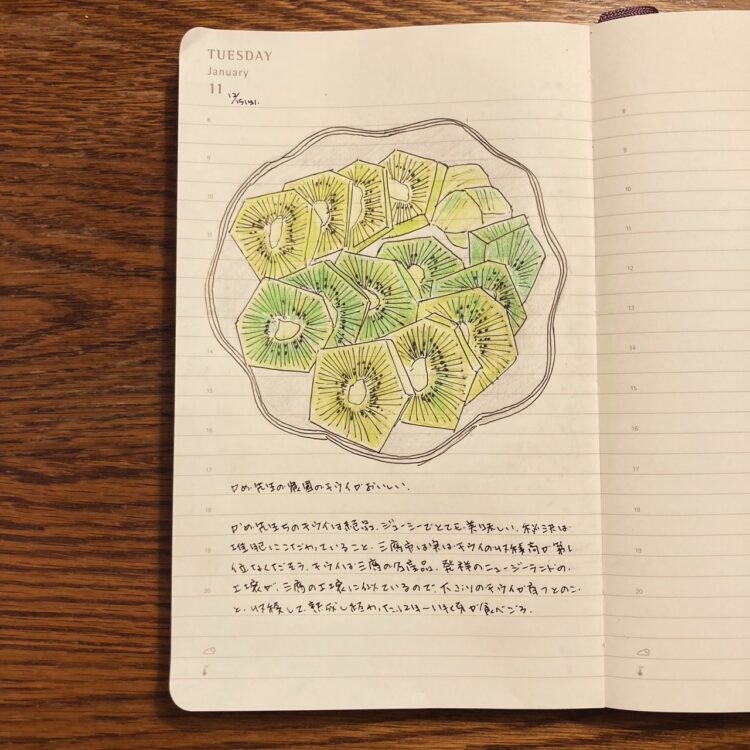 TUESDAY
January
11
8
9
10
11
14
15
16
17
かめ先生の農園のキウイがおいしい。
18
かめ先生ちのキウイは絶品。ジューシーでとても美味しい。秘決は
19
堆肥にこだわっていること。三鷹市は実はキウイの収穫高が第1
位なんだそう。キウイは三鷹の名産品。発祥のニュージーランドの
20
土壌が、三鷹の土壌に似ているので、大ぶりのキウイが育つとのこ
と。収穫して熟成し終わった 頃が食べごろ。
8
9
10
11
12
13
14
15
16
17
18
19
20